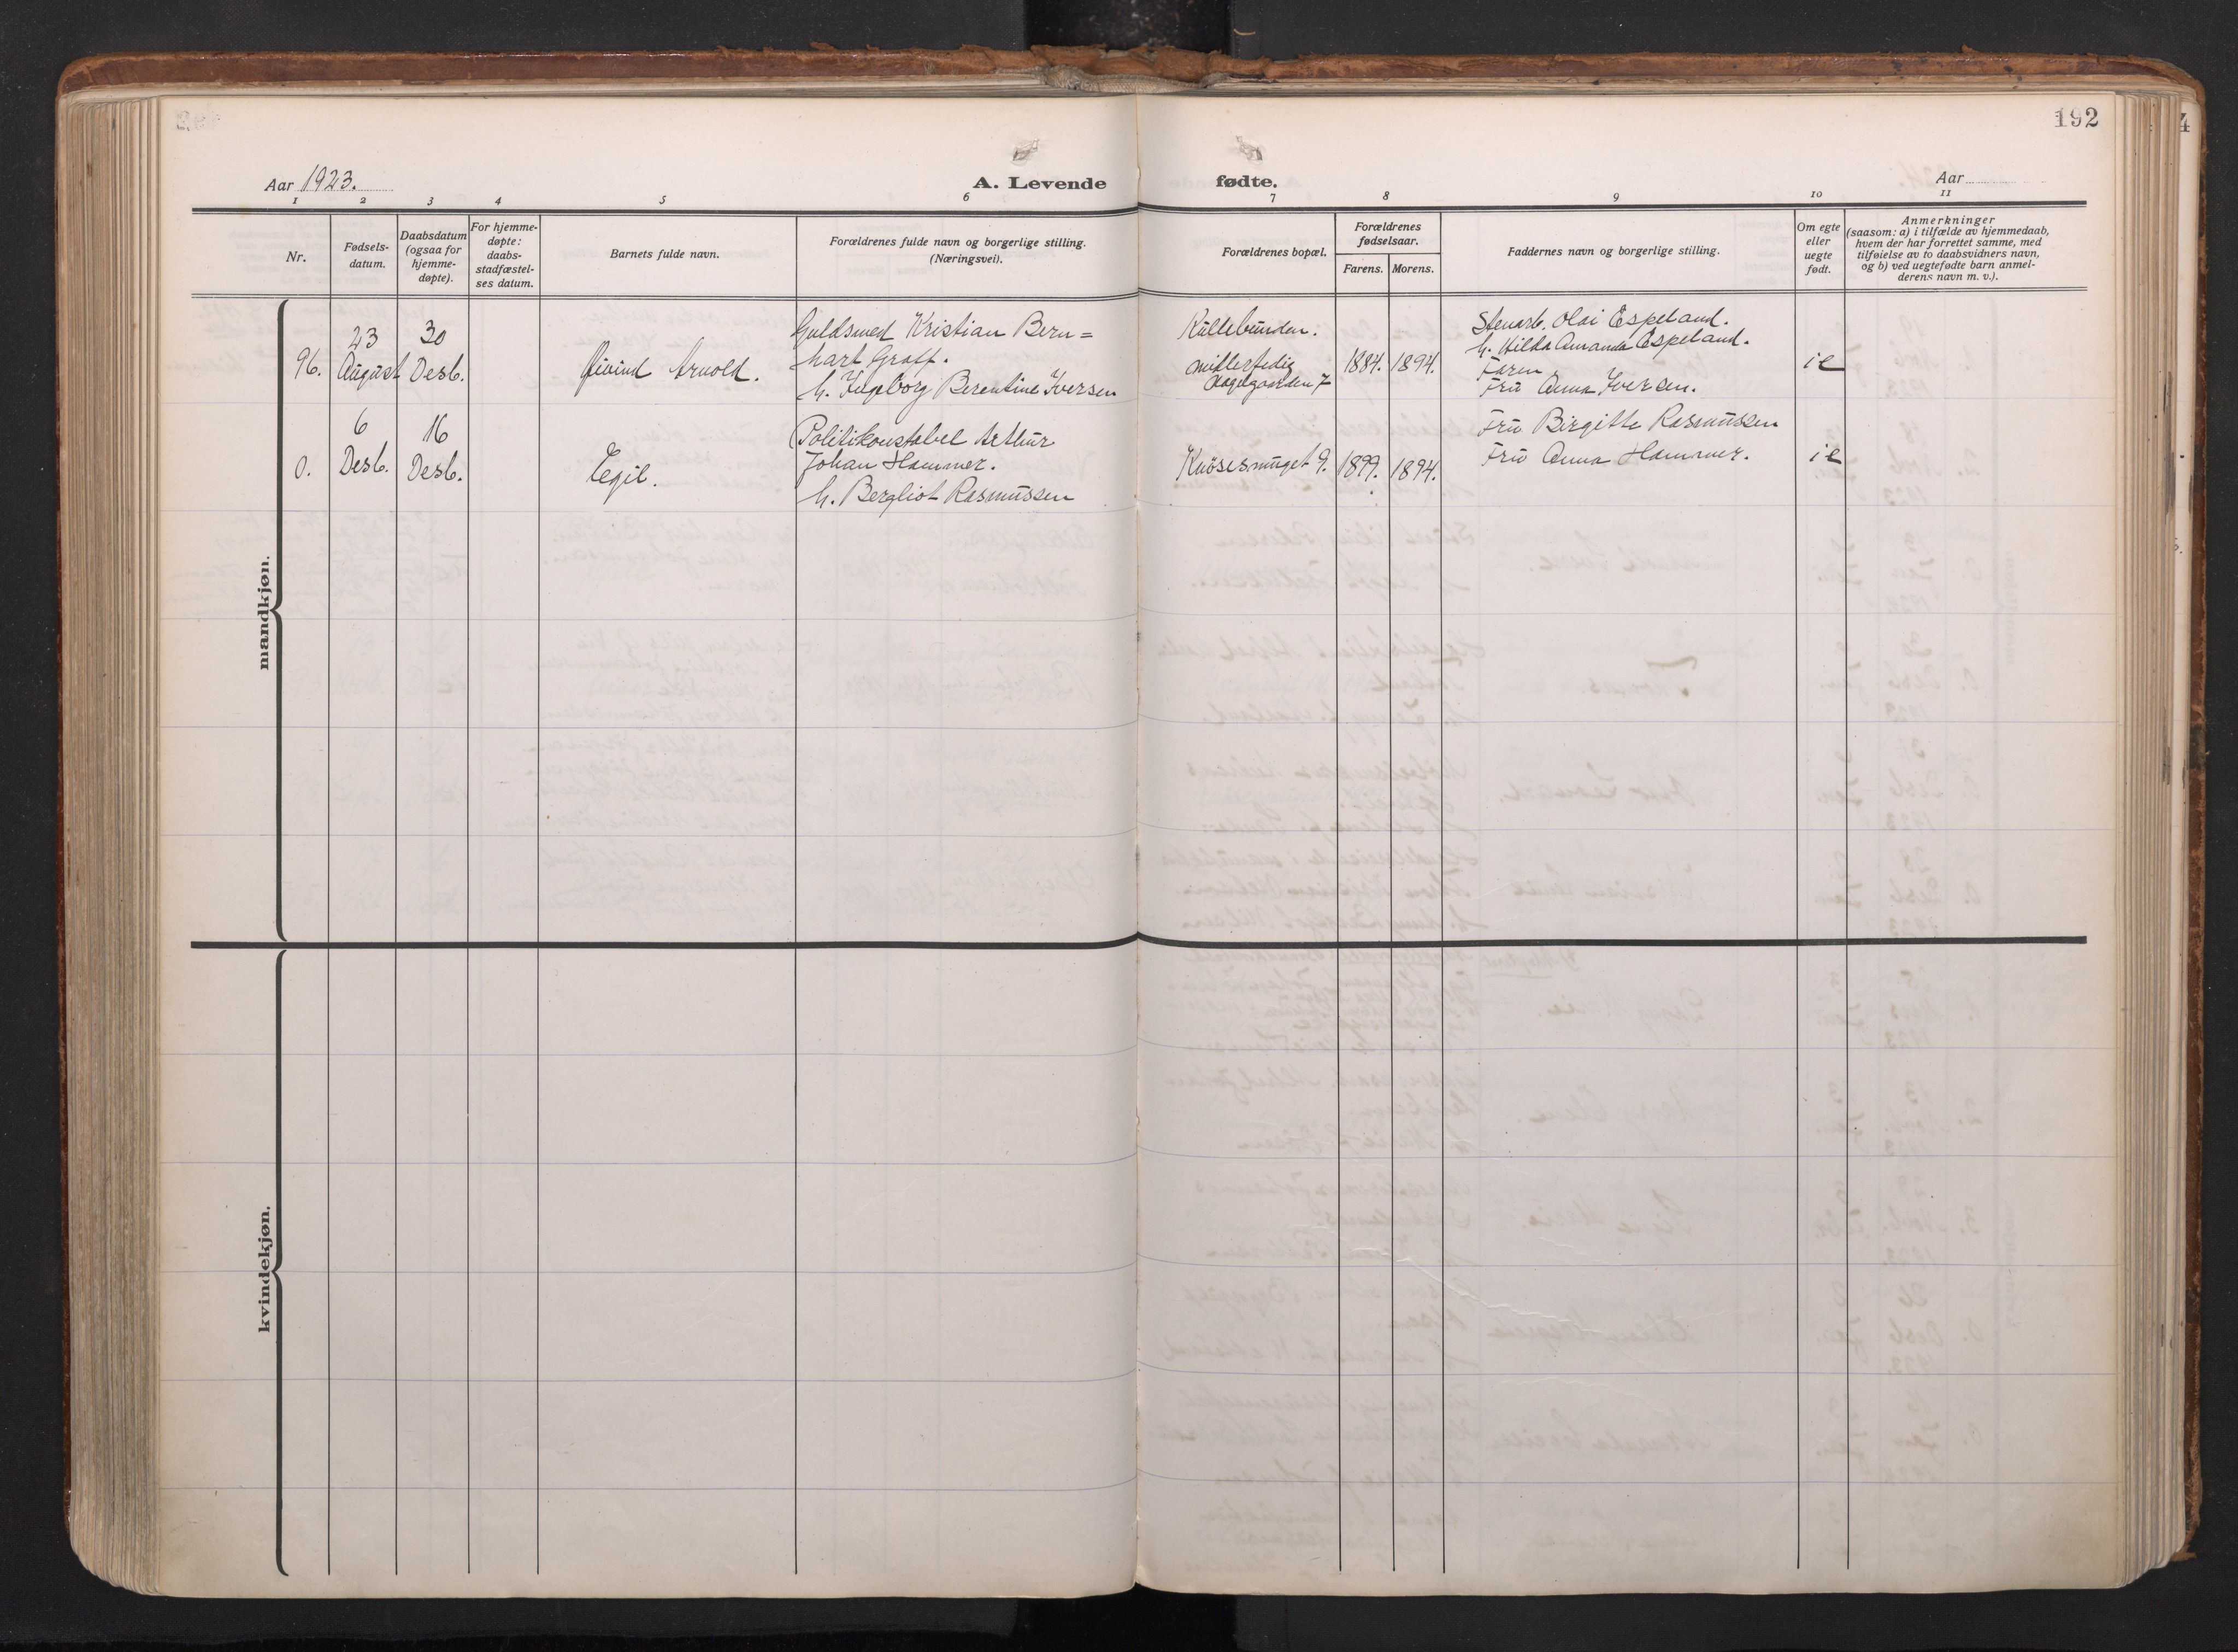 192
Aar 1923.
A. Levende fødte.
Aar
1 2 3 4 5 6 7 8 9 10 11
Nr.
Fødsels-
datum.
Daabsdatum
(ogsaa for
hjemme-
døpte).
For hjemme-
døpte:
daabs-
stadfæstel-
ses datum.
Barnets fulde navn.
Forældrenes fulde navn og borgerlige stilling.
(Næringsvei).
Forældrenes bopæl.
Forældrenes
fødselsaar.
Farens. Morens.
Faddernes navn og borgerlige stilling.
Om egte
eller
uegte
født.
Anmerkninger
(saasom: a) i tilfælde av hjemmedaab,
hvem der har forrettet samme, med
tilføielse av to daabsvidners navn,
og b) ved uegtefødte barn anmel-
derens navn m. v.).
mandkjøn.
96.
23
August
30
Desb.
Øivind Arnold.
Guldsmed Kristian Bern=
hart Graff.
h. Ingeborg Berentine Iversen
midlertidig
1884. 1894.
Stenarb. Olai Espeland.
h. Hilda Amanda Espeland.
Faren
Fru Anna Iversen.
ie
0.
6
Desb.
16
Desb.
Egil.
Politikonstabel Arthur
Johan Hammer.
h. Bergliot Rasmussen
Knøsesmuget 9.
1899. 1894.
Fru Birgitte Rasmussen
Fru Anna Hammer.
ie
kvindekjøn.